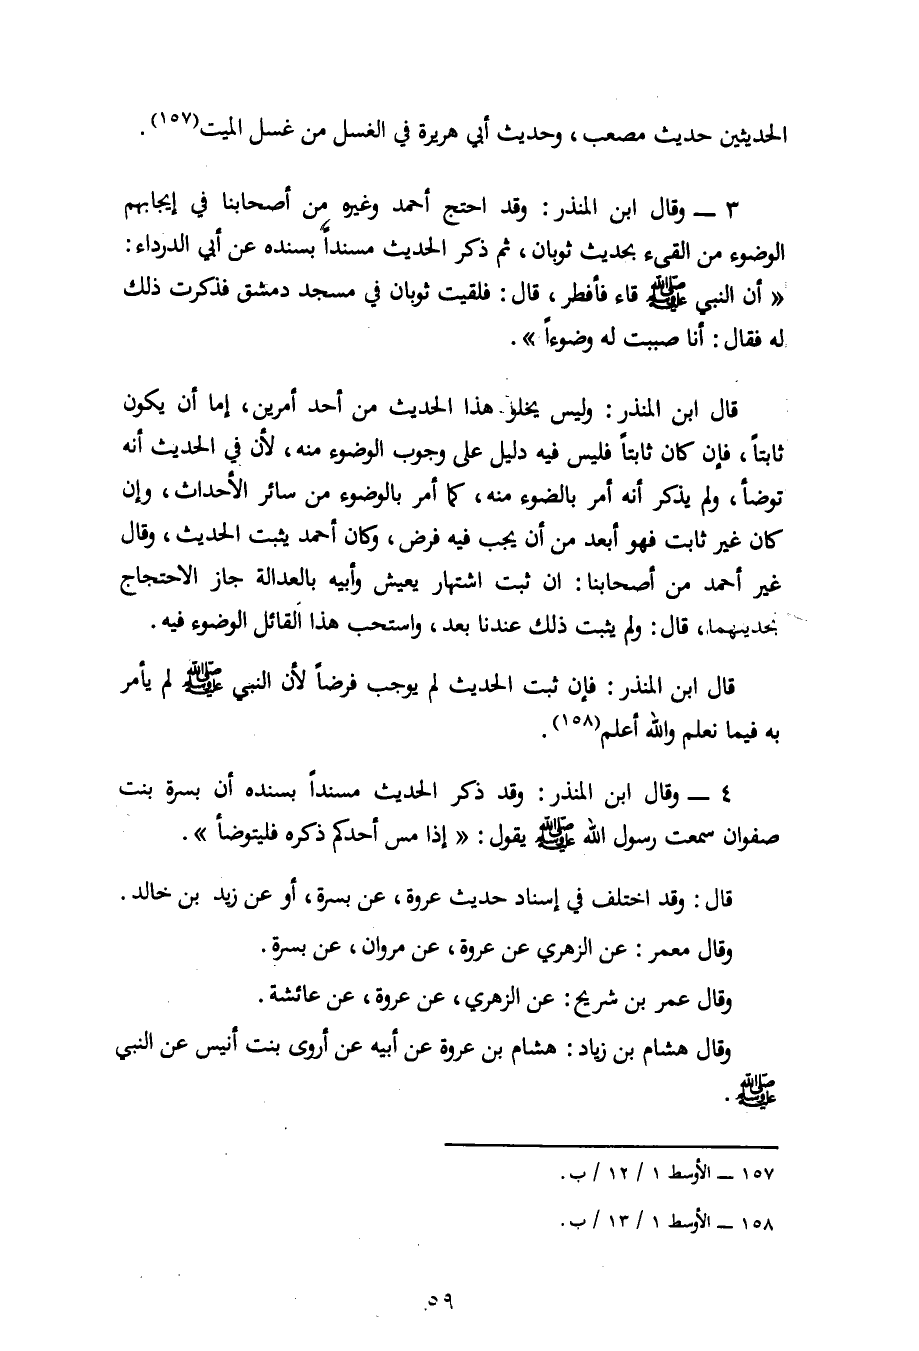 الحديثين حديث مصعب ، وحديث أبي هريرة في الغسل من غسل الميت(١٥٧) .
٣ ــ وقال ابن المنذر : وقد احتج أحمد وغيره من أصحابنا في إيجابهم
الوضوء من القيء بحديث ثوبان ، ثم ذكر الحديث مسنداً بسنده عن أبي الدرداء :
« أن النبي ﷺ قاء فأفطر ، قال : فلقيت ثوبان في مسجد دمشق فذكرت ذلك
له فقال : أنا صببت له وضوءاً » .
قال ابن المنذر : وليس يخلو هذا الحديث من أحد أمرين ، إما أن يكون
ثابتاً ، فإن كان ثابتاً فليس فيه دليل على وجوب الوضوء منه ، لأن في الحديث أنه
توضأ ، ولم يذكر أنه أمر بالضوء منه ، كما أمر بالوضوء من سائر الأحداث ، وإن
كان غير ثابت فهو أبعد من أن يجب فيه فرض ، وكان أحمد يثبت الحديث ، وقال
غير أحمد من أصحابنا : ان ثبت اشتهار يعيش وأبيه بالعدالة جاز الاحتجاج
بحديثهما ، قال : ولم يثبت ذلك عندنا بعد ، واستحب هذا القائل الوضوء فيه .
قال ابن المنذر : فإن ثبت الحديث لم يوجب فرضاً لأن النبي ﷺ لم يأمر
به فيما نعلم والله أعلم(١٥٨) .
٤ ــ وقال ابن المنذر : وقد ذكر الحديث مسنداً بسنده أن بسرة بنت
صفوان سمعت رسول الله ﷺ يقول : « إذا مس أحدكم ذكره فليتوضأ » .
قال : وقد اختلف في إسناد حديث عروة ، عن بسرة ، أو عن زيد بن خالد .
وقال معمر : عن الزهري عن عروة ، عن مروان ، عن بسرة .
وقال عمر بن شريح : عن الزهري ، عن عروة ، عن عائشة .
وقال هشام بن زياد : هشام بن عروة عن أبيه عن أروى بنت أنيس عن النبي
ﷺ .
١٥٧ ــ الأوسط ١ / ١٢ / ب .
١٥٨ ــ الأوسط ١ / ١٣ / ب .
٥٩